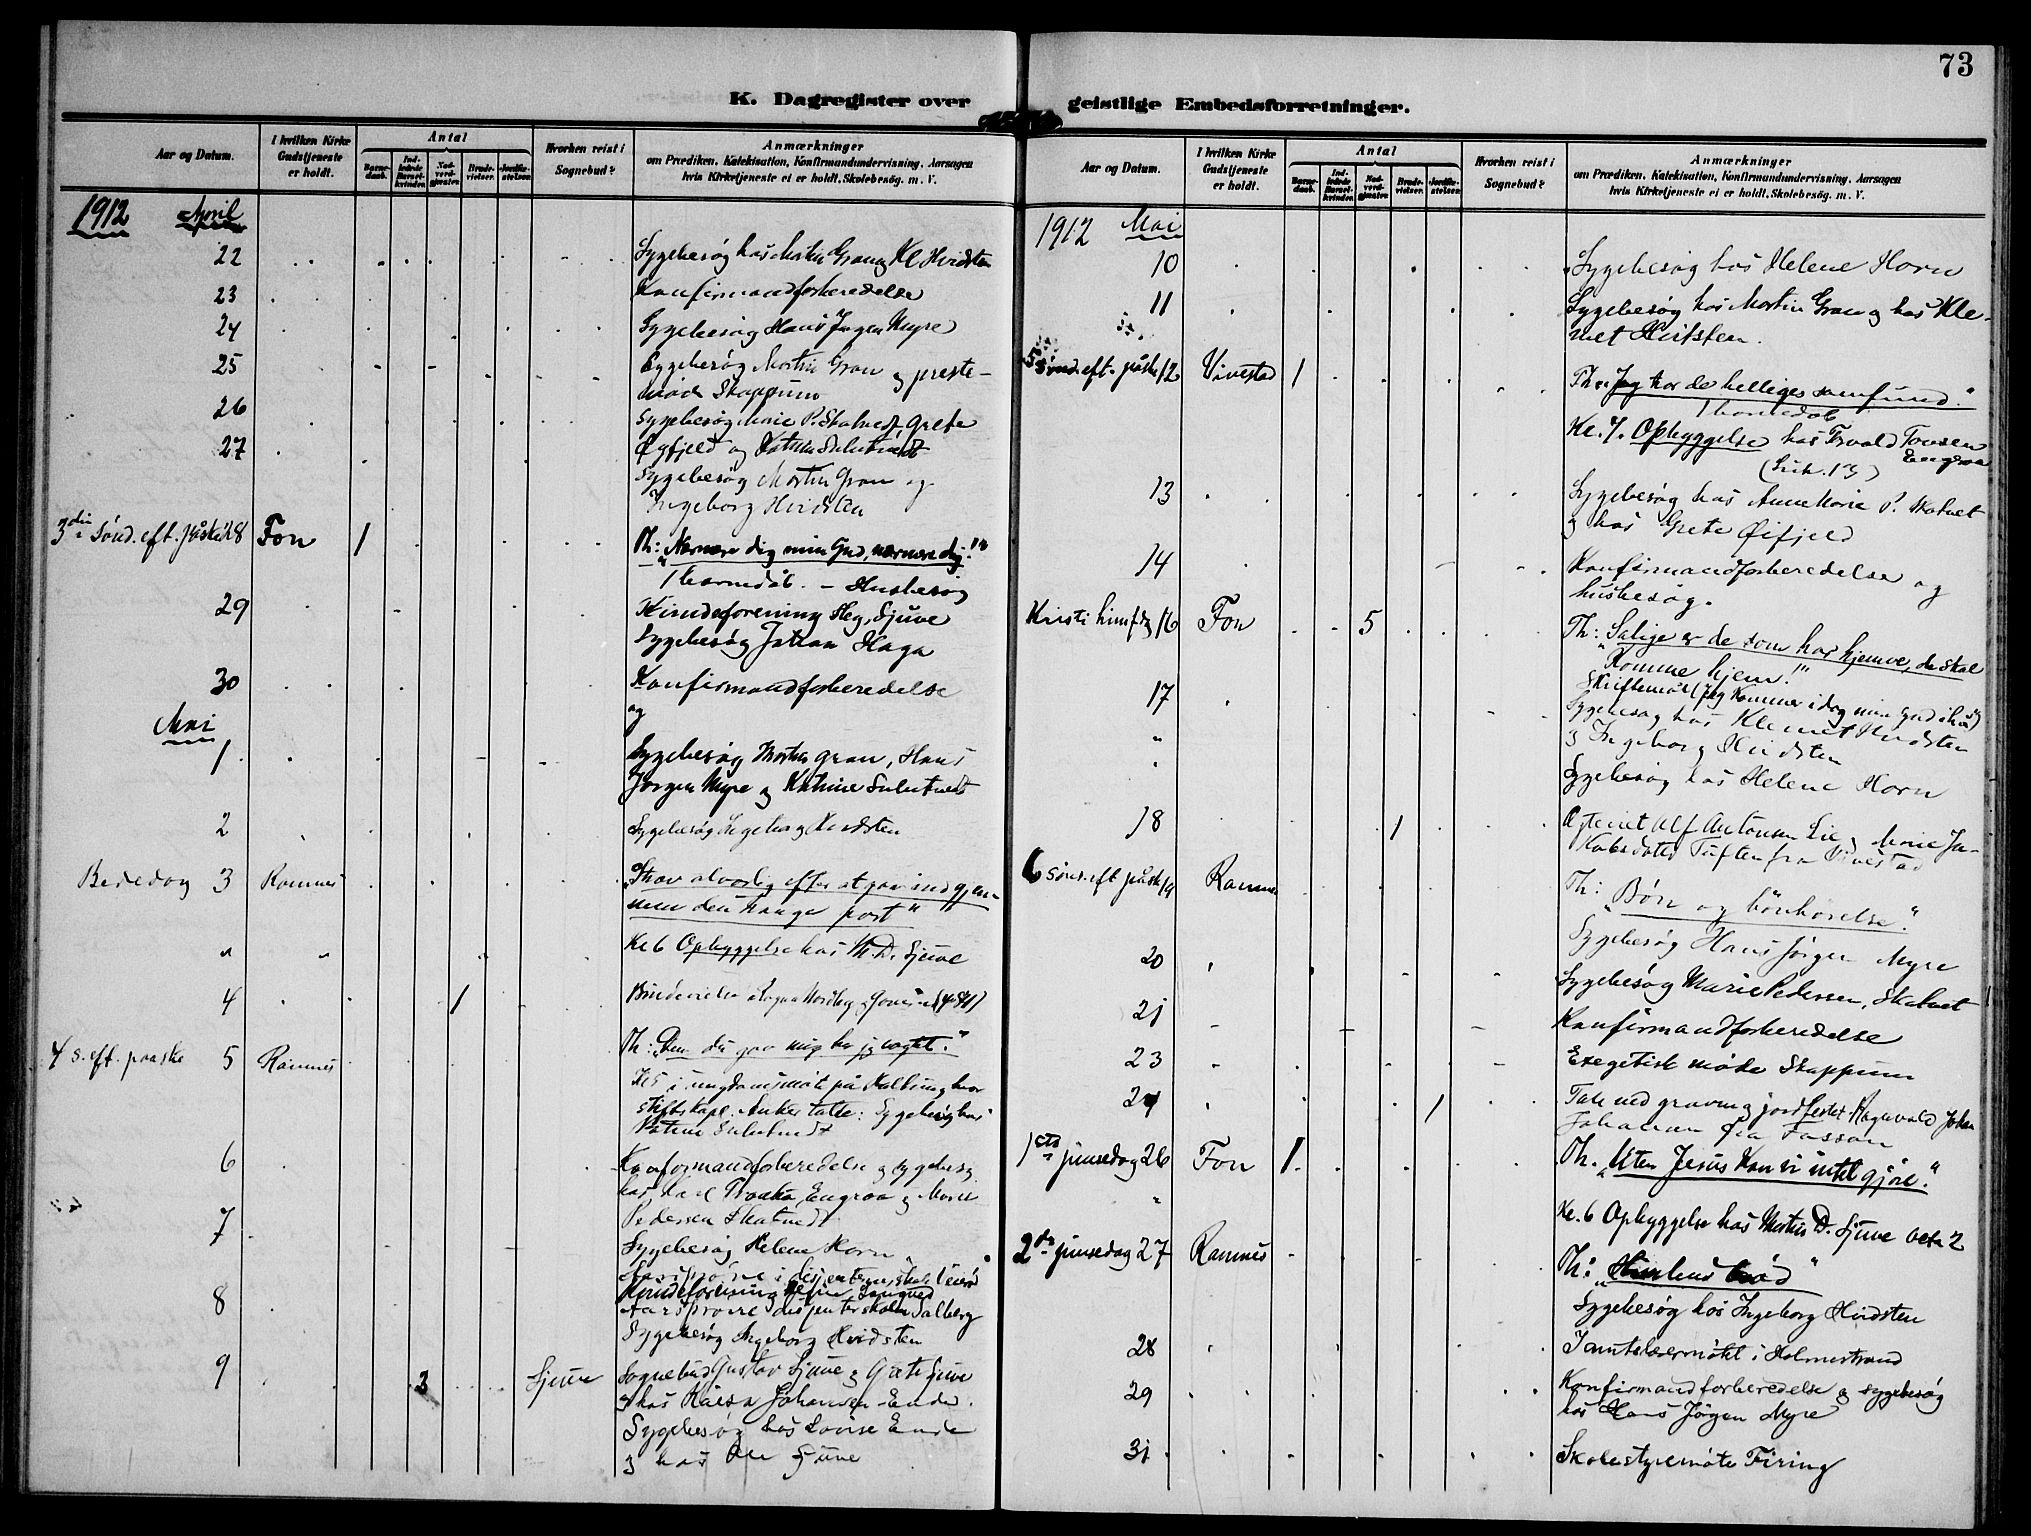 73
K. Dagregister over geistlige Embedsforretninger.
Aar og Datum.
I hvilken Kirke Gudstjeneste er holdt.
Antal
Barnedaab.
Indledede Barselkvinder.
Nadverdgjæster.
Brudevielser.
Jordfæstelser.
Hvorhen reist i Sognebud?
Anmærkninger
om Prædiken, Katekisation, Konfirmandundervisning, Aarsagen
hvis Kirketjeneste ei er holdt, Skolebesøg. m. V.
1912 April
22 Sygebesøg hos Martin Gran og Kl Hvidsten
23 Konfirmandforberedelse
24 Sygebesøg Hans Jørgen Myre
25 Sygebesøg Martin Gran og preste-
møde Skoppum
26 Sygebesøg Marie P. Skatvedt, Grete
27 Øyfjeld og
Sygebesøg Martin Gran og
Ingeborg Hvidsten
3die Sønd. eft. påske 28 Fon 1 Th: "Nærmere dig min Gud, nærmere dig!"
1 barnedåb. - Husbesøg
29 Kvindeforening Heg, Sjuve
Sygebesøg Johan Haga
30 Konfirmandforberedelse
og
Mai
1 Sygebesøg Martin Gran, Hans
Jørgen Myre og Katrine
2 Sygebesøg Ingeborg Hvidsten
Bededag 3 Ramnes "Stræv alvorlig efter at gaa ind gjen-
nem den trange port"
" " Kl 6 Opbyggelse hos M. D. Sjuve
4 1 Brudevielse
4 s. eft. paaske 5 Ramnes Th: "Dem du gav mig har jeg vogtet."
Kl 5 i ungdomsmøte på
stiftskapl. Anker talte: Sygebesøg hos
6 Konfirmandforberedelse og sygebesøg
hos Karl Engroa og Marie
7 Pedersen Skatvedt
Sygebesøg Helene Horn
8 Kvindeforening
Sygebesøg Ingeborg Hvidsten
9 3 Sjuve Sognebud Gustav Sjuve og Grete Sjuve
og hos Johansen Ende.
Sygebesøg hos Lovise Ende
og hos Ole Sjuve
Aar og Datum.
I hvilken Kirke Gudstjeneste er holdt.
Antal
Barnedaab.
Indledede Barselkvinder.
Nadverdgjæster.
Brudevielser.
Jordfæstelser.
Hvorhen reist i Sognebud?
Anmærkninger
om Prædiken, Katekisation, Konfirmandundervisning, Aarsagen
hvis Kirketjeneste ei er holdt, Skolebesøg. m. V.
1912 Mai
10 Sygebesøg hos Helene Horn
11 Sygebesøg hos Martin Gran og hos Kle-
met Hvitsten.
5 Sønd. eft. påske 12 Vivestad 1 Th: "Jeg tror de helliges samfund."
1 barnedåb
Kl. 7. Opbyggelse hos Trvald Tovsen
Engroa
(Luk. 13)
13 Sygebesøg hos Anne Marie P. Skatvet
og hos Grete Øifjeld
14 Konfirmandforberedelse og
husbesøg.
Kristi himfdg 16 Fon 5 Th: "Salige er de som har hjemve, de skal
komme hjem!"
Skriftemål (Jeg kommer i dag min Gud i hu)
17 Sygebesøg hos Klemet Hvidsten
" og Ingeborg Hvidsten
Sygebesøg hos Helene Horn
18 1 Ægteviet Alf Antonsen Lie og Marie Ja-
kobsdatter Tuften fra Vivestad
6 sønd. eft påske 19 Ramnes Th: "Bøn og bönhørelse."
20 Sygebesøg Hans Jørgen Myre
Sygebesøg Marie Pedersen, Skatvet
21 Konfirmandforberedelse
23 Exegetisk møde Skoppum
24 1 Tale ved graven og jordfestet Ragnvald Johan
Johansen fra Fossan
1ste pinsedag 26 Fon 1 Th. "Uten Jesus kan vi intet gjøre."
" Kl. 6 Opbyggelse hos Martin D. Sjuve acta 2
2den pinsedag 27 Ramnes Th: "Himlens brød"
Sygebesøg hos Ingeborg Hvidsten
28 Jamtelærermøtet i Holmestrand
29 Konfirmandforberedelse og sygebesøg
hos Hans Jørgen Myre
31 Skolestyremøte Firing